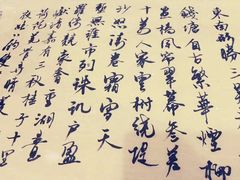 東南形勝三
錢塘自古繁華煙柳
畫橋風簾翠幕參差
十萬人家雲樹繞堤
沙怒濤卷霜雪天
塹無涯市列珠璣戶盈
羅綺競豪奢重湖疊
巘清嘉有三秋桂子十里